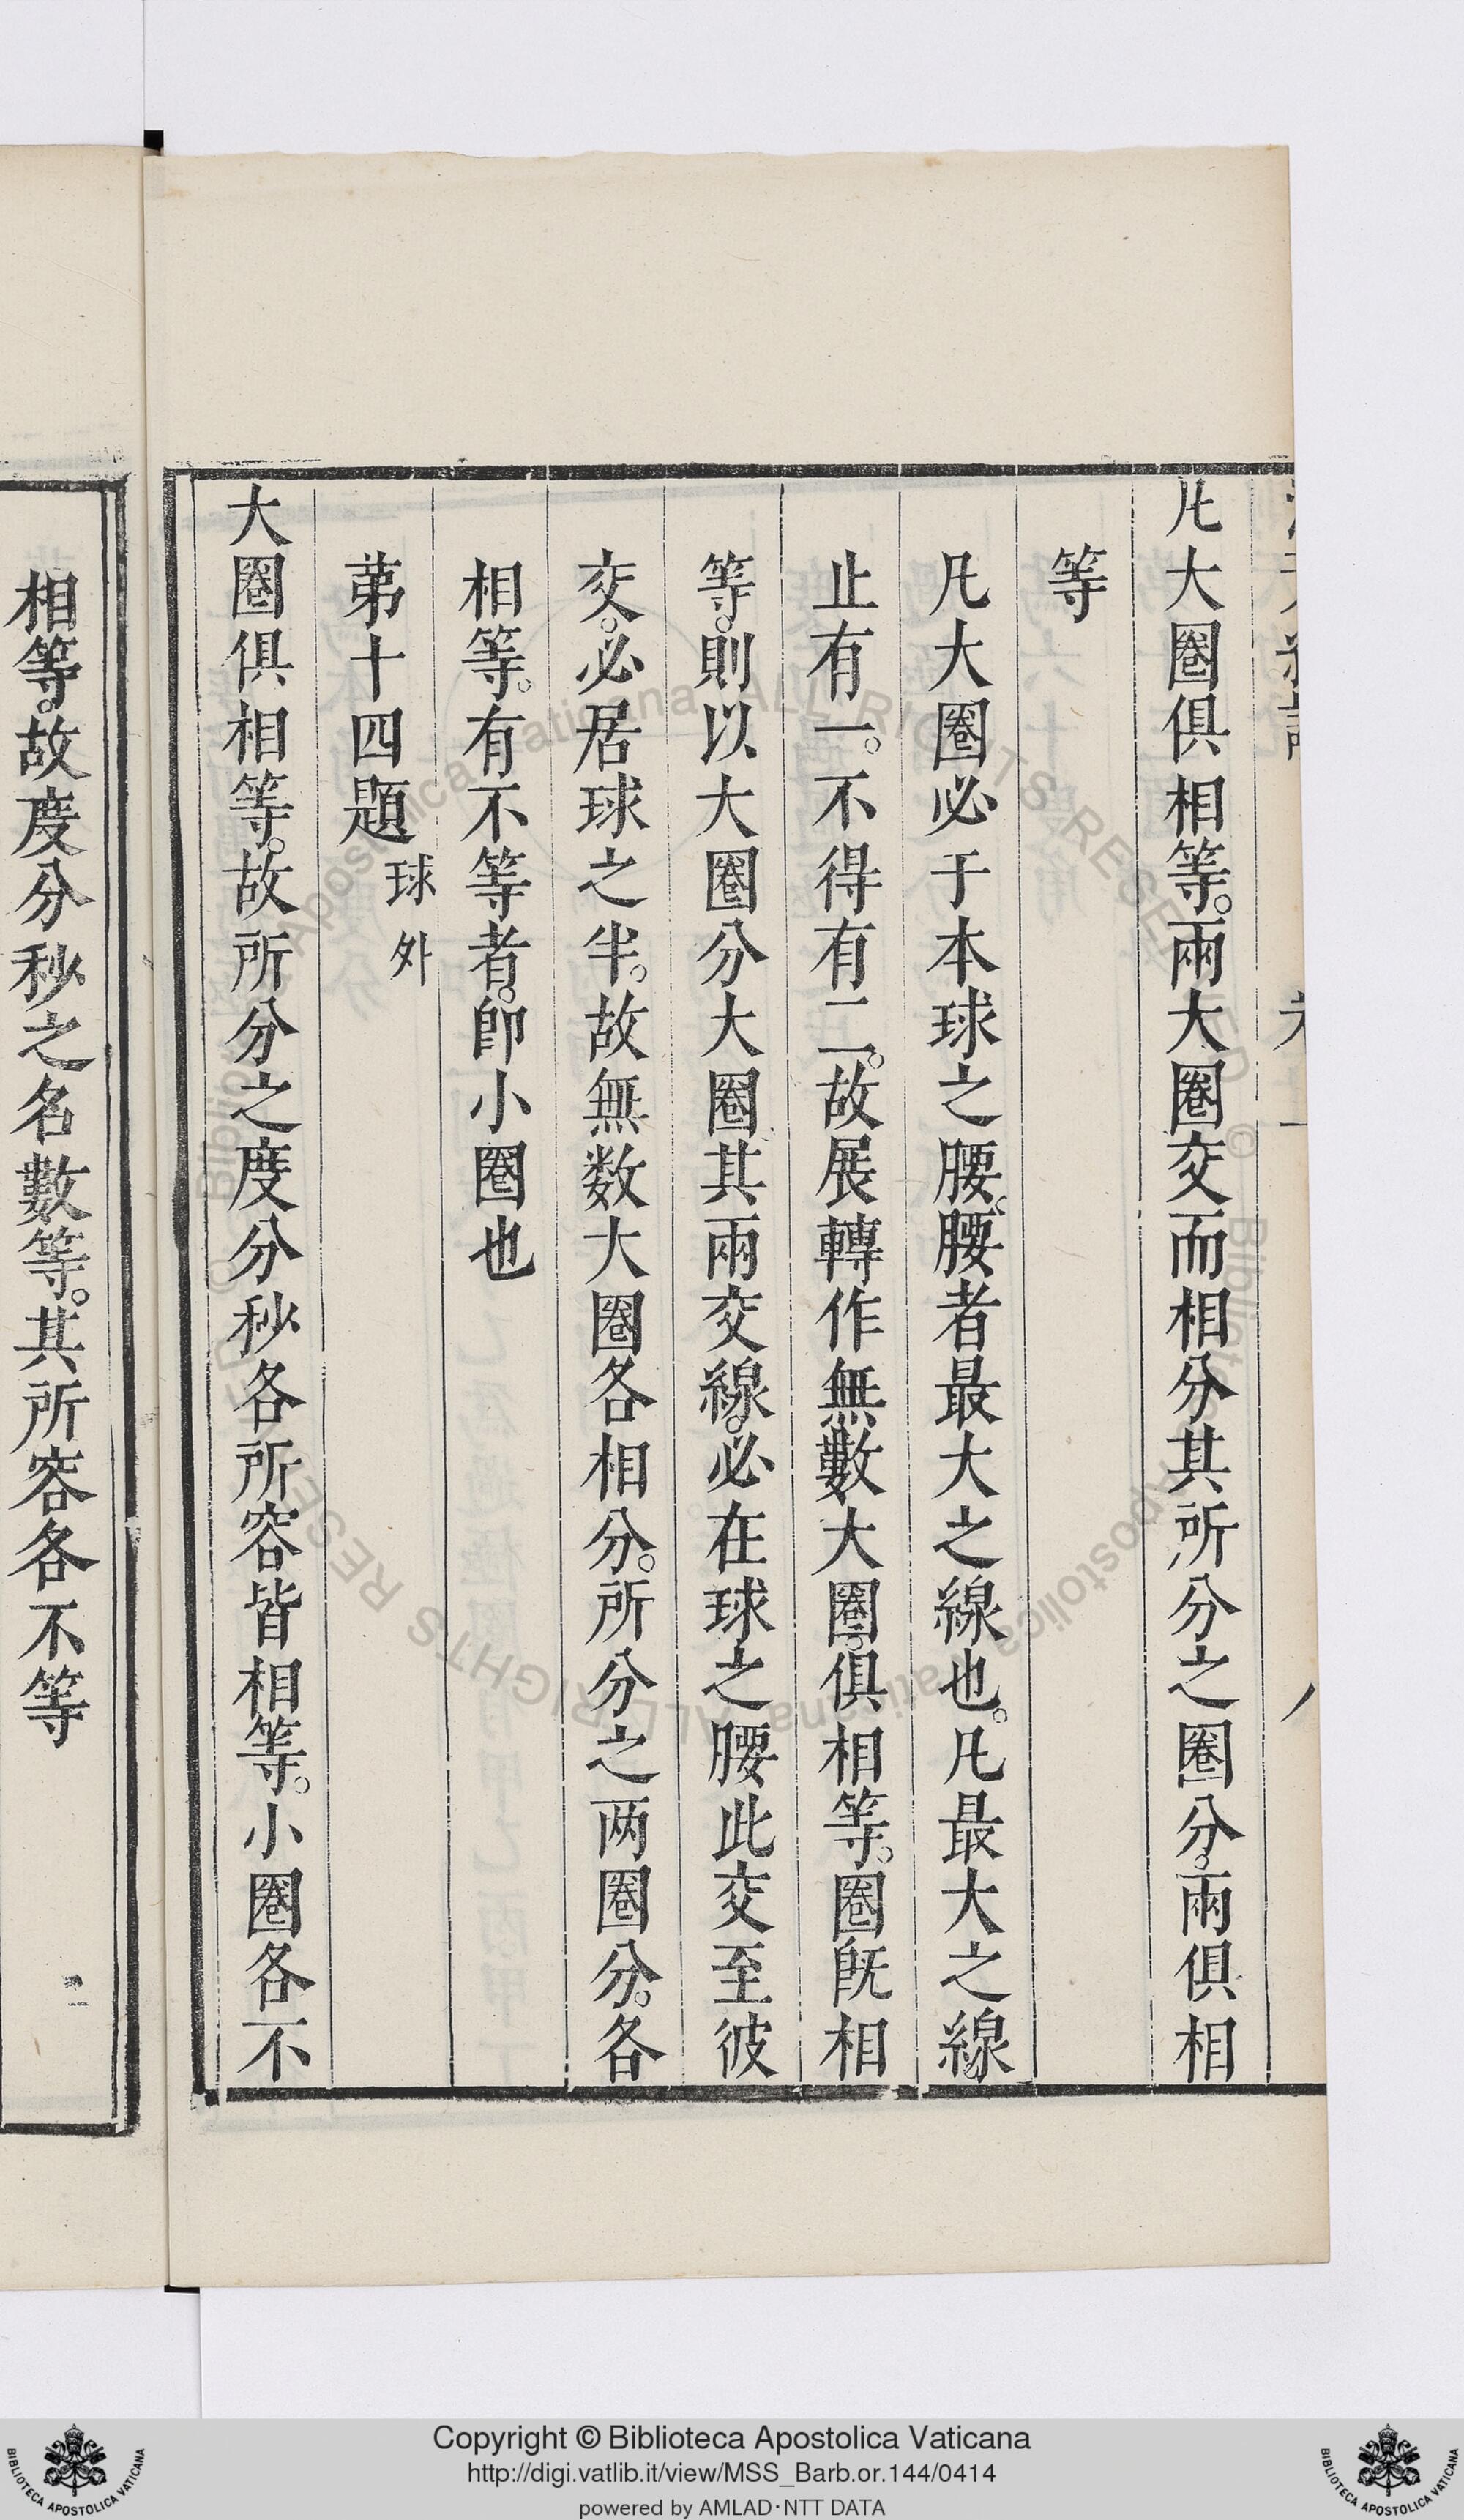 凡大圈俱相等。兩大圈交而相分其所分之圈分。兩俱相
等
凡大圈必于本球之腰。腰者最大之線也。凡最大之線。
止有一。不得有二。故展轉作無數大圈。俱相等。圈旣相
等。則以大圈分大圈其兩交線。必在球之腰此交至彼
交。必居球之半。故無数大圈各相分。所分之两圈分。各
相等。有不等者。卽小圈也
苐十四題 球外
大圈俱相等。故所分之度分秒各所容皆相等。小圈各不
相等。故度分秒之名數等。其所容各不等
Copyright © Biblioteca Apostolica Vaticana
http://digi.vatlib.it/view/MSS_Barb.or.144/0414
powered by AMLAD·NTT DATA
BIBLIOTECA APOSTOLICA VATICANA
BIBLIOTECA APOSTOLICA VATICANA